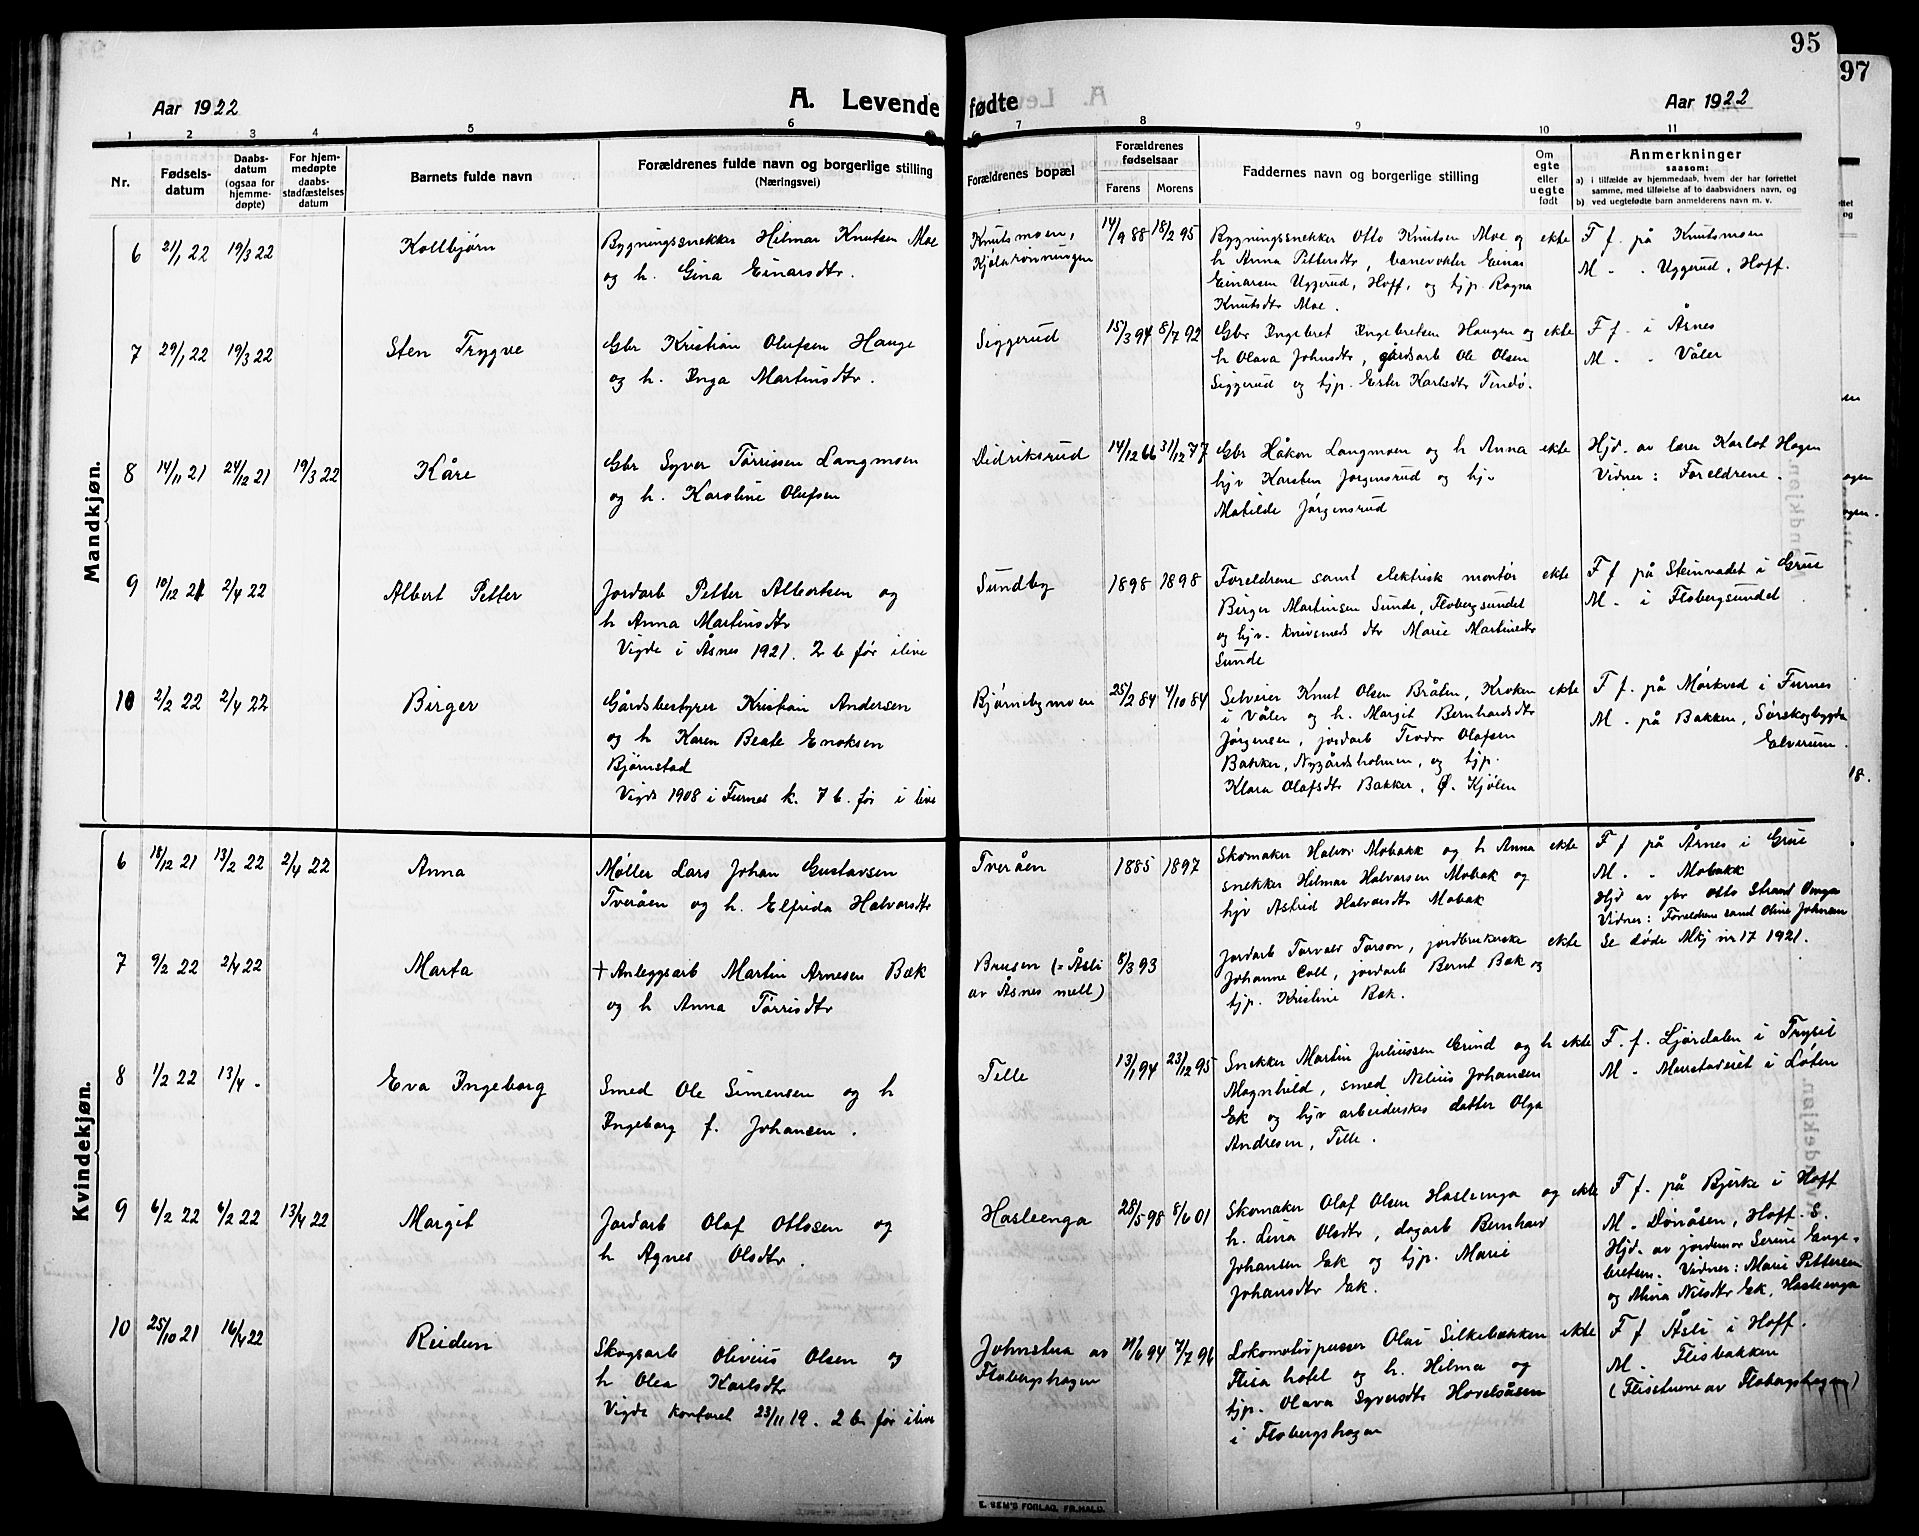 95
97
Aar 1922
A. Levende fødte
Aar 1922
1 2 3 4 5 6 7 8 9 10 11
Nr.
Fødselsdatum
Daabsdatum (ogsaa for hjemmedøpte)
For hjemmedøpte daabsstadfæstelses datum
Barnets fulde navn
Forældrenes fulde navn og borgerlige stilling (Næringsvei)
Forældrenes bopæl
Forældrenes fødselsaar
Farens Morens
Faddernes navn og borgerlige stilling
Om egte eller uegte født
Anmerkninger saasom:
a) i tilfælde av hjemmedaab, hvem der har forrettet samme, med tilføielse af to daabsvidners navn, og
b) ved uegtefødte barn anmelderens navn m. v.
Mandkjøn.
6 21/1 22 19/3 22 Kollbjørn
Bygningssnekker Hilmar Knutsen Moe
og h. Gina Einarsdtr.
Knutsmoen,
Kjølarønningen
14/9 88 18/2 95
Bygningssnekker Otto Knutsen Moe og ekte
h Anna Pettersdtr, banevokter Einar
Einarsen Uggerud, Hoff, og hjp. Ragna
Knutsdtr Moe.
F f. på Knutsmoen
M - - Uggerud, Hoff.
7 29/1 22 19/3 22 Sten Trygve
Gbr Kristian Olufsen Hauge
og h. Inga Martinsdtr.
Siggerud
15/3 94 8/7 92
Gbr Ingebret Ingebretsen Haugen og ekte
h Olava Johnsdtr, gårdsarb Ole Olsen
Siggerud og hjp. Ester Karlsdtr Tendø.
F f. i Åsnes
M - - Våler
8 14/11 21 24/12 21 19/3 22 Kåre
Gbr Syver Tørrissen Langmoen
og h. Karoline Olufsen
Didriksrud
14/12 66 31/12 77
Gbr Håkon Langmoen og h Anna ekte
hjv Karsten Jørgensrud og hjv
Matilde Jørgensrud
Hjd. av lærer Karlot Hagen
Vidner: Foreldrene.
9 10/12 21 2/4 22 Albert Petter
Jordarb Petter Albertsen og
h Anna Martinsdtr
Vigde i Åsnes 1921. 2 b før ilive
Sundby
1898 1898
Foreldrene samt elektrisk montør ekte
Birger Martinsen Sunde, Flobergsundet
og hjv. knivsmeds dtr Marie Martinsdtr
Sunde
F f på Steinvadet i Grue
M. - i Flobergsundet
10 2/2 22 2/4 22 Birger
Gårdsbestyrer Kristian Andersen
og h Karen Beate Enoksen
Bjørnstad
Vigde 1908 i Furnes k. 7 b. før i live
Bjørnebymoen
25/2 84 4/10 84
Selveier Knut Olsen Bråten, Kroken ekte
i Våler og h. Margit Bernhardsdtr
Jørgensen, jordarb Teodor Olafsen
Bakken, Nygårdsholmen, og hjp.
Klara Olafsdtr Bakker, Ø. Kjølen
F f. på Mørkved i Furnes
M - på Bakken, Sørskogbygda
Elverum.
Kvindekjøn.
6 18/12 21 13/2 22 2/4 22 Anna
Møller Lars Johan Gustavsen
Tveråen og h. Elfrida Halvorsdtr
Tveråen
1885 1897
Skomaker Halvor Mobakk og h Anna ekte
snekker Hilmar Halvorsen Mobak og
hjv Astrid Halvorsdtr Mobak
F f på Årnes i Grue
M. - - Mobakk
Hjd av gbr Otto Strand
Vidner: Foreldrene samt Oline Johnsen
7 9/2 22 2/4 22 Marta
+ Anleggsarb Martin Arnesen Bæk
og h Anna Tørrisdtr
Brusen (= Åsli
av Åsnes mell)
8/3 93
Jordarb Torvald Torson, jordbrukerske ekte
Johanne Coll, jordarb Bernt Bæk og
hjp. Kristine Bæk.
Se døde Mkj nr 17 1921.
8 1/2 22 13/4 - Eva Ingeborg
Smed Ole Simensen og h
Ingeborg f. Johansen.
Telle
13/1 94 23/12 95
Snekker Martin Juliussen Grind og h ekte
Magnhild, smed Nelius Johansen
Ek og hjv arbeiderskes datter Olga
Andresen, Telle.
F. f. Ljørdalen i Trysil
M - i Løten
9 6/2 22 6/2 22 13/4 22 Margit
Jordarb Olaf Ottosen og
h Agnes Olsdtr.
Hasleenga
28/5 98 8/6 01
Skomaker Olaf Olsen Hasleenga og ekte
h. Lina Olsdtr, dagarb Bernhard
Johansen Ek og hjp. Marie
Johansdtr Ek.
F f. på Bjerke i Hoff
M - Dønåsen, Hoff. S.
Hjd. av jordemor Serine Engebretsen.
Vidner: Marie Pettersen
og Alma Nilsdtr Ek, Hasleenga
10 25/10 21 16/4 22 Reidun
Skogsarb Olivius Olsen og
h Olea Karlsdtr
Vigde kontoret 23/11 19. 2 b før ilive
Johnstua av
Flobergshagen
21/6 94 7/7 96
Lokomotivpusser Olai Silkebækken ekte
Flisa hotel og h. Hilma og
hjp. Olava Syversdtr Hovelsåsen
i Flobergshagen
F f Åsli i Hoff.
M - Flisbakken
(Flisetuene av Flobergshagen)
E. SEM'S FORLAG, FR.HALD.